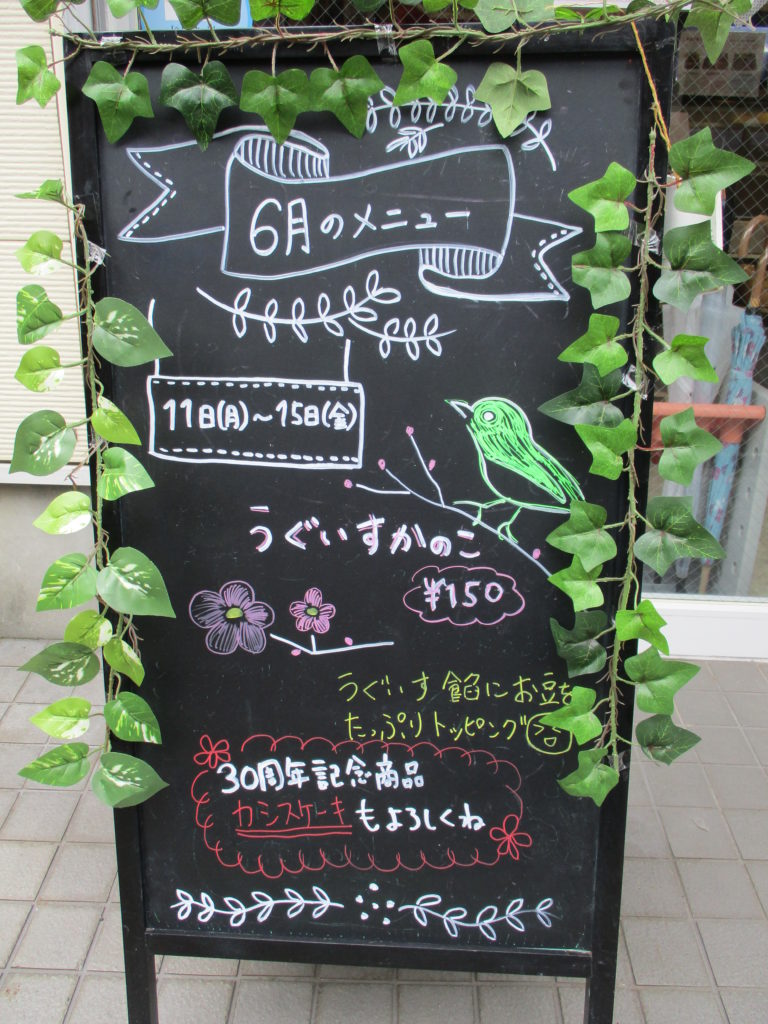 6月のメニュー
11日(月)～15日(金)
うぐいすかのこ
¥150
うぐいす餡にお豆を
たっぷりトッピング
30周年記念商品
カシスケーキもよろしくね